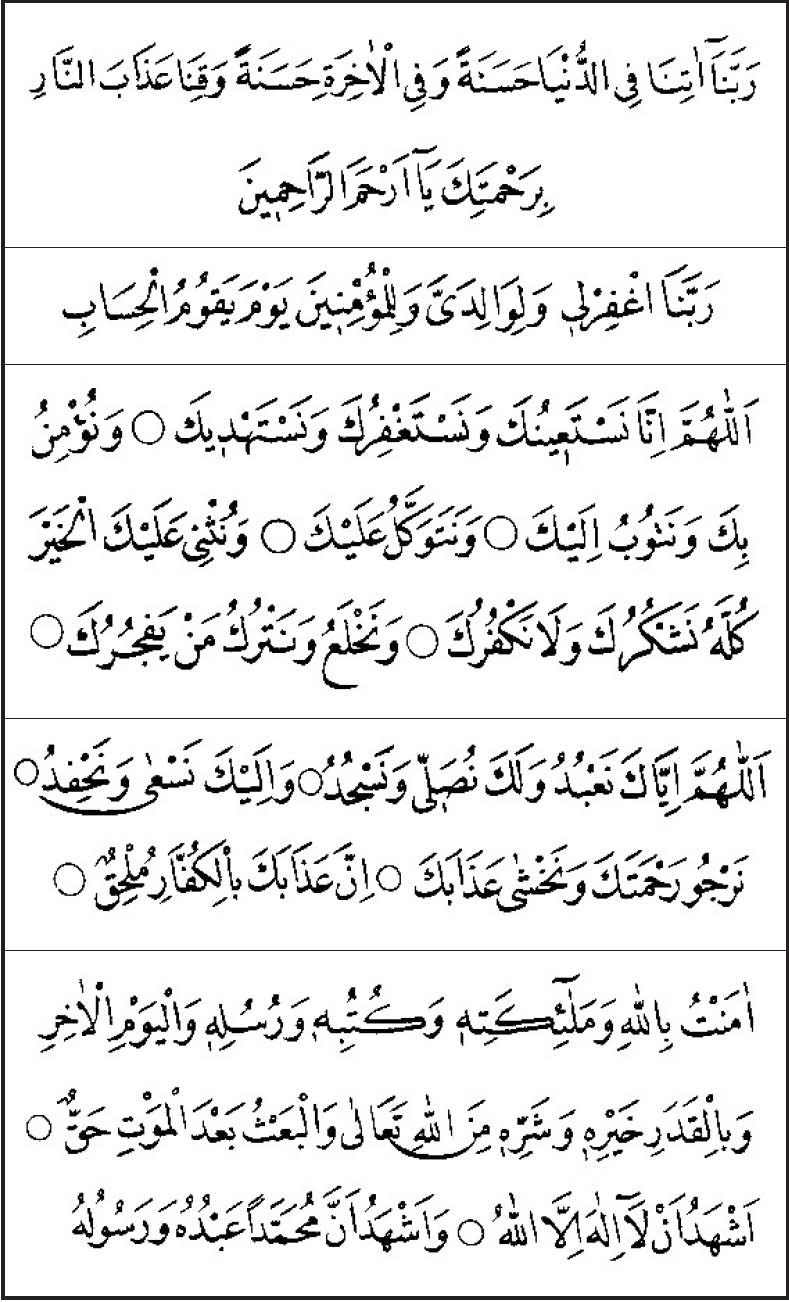 رَبَّنَآ اٰتِنَا فِي الدُّنْيَا حَسَنَةً وَفِي الْاٰخِرَةِ حَسَنَةً وَقِنَا عَذَابَ النَّارِ
بِرَحْمَتِكَ يَآ اَرْحَمَ الرَّاحِمِينَ
رَبَّنَا اغْفِرْلِي وَلِوَالِدَىَّ وَلِلْمُؤْمِنِينَ يَوْمَ يَقُومُ الْحِسَابِ
اَللّٰهُمَّ اِنَّا نَسْتَعِينُكَ وَنَسْتَغْفِرُكَ وَنَسْتَهْدِيكَ ○ وَنُؤْمِنُ
بِكَ وَنَتُوبُ اِلَيْكَ ○ وَنَتَوَكَّلُ عَلَيْكَ ○ وَنُثْنِى عَلَيْكَ الْخَيْرَ
كُلَّهُ نَشْكُرُكَ وَلَا نَكْفُرُكَ ○ وَنَخْلَعُ وَنَتْرُكُ مَنْ يَفْجُرُكَ ○
اَللّٰهُمَّ اِيَّاكَ نَعْبُدُ وَلَكَ نُصَلِّي وَنَسْجُدُ ○ وَاِلَيْكَ نَسْعٰى وَنَحْفِدُ ○
نَرْجُو رَحْمَتَكَ وَنَخْشٰى عَذَابَكَ ○ اِنَّ عَذَابَكَ بِالْكُفَّارِ مُلْحِقٌ ○
اٰمَنْتُ بِاللّٰهِ وَمَلٰٓئِكَتِهِ وَكُتُبِهِ وَرُسُلِهِ وَالْيَوْمِ الْاٰخِرِ
وَبِالْقَدَرِ خَيْرِهِ وَشَرِّهِ مِنَ اللّٰهِ تَعَالٰى وَالْبَعْثُ بَعْدَ الْمَوْتِ حَقٌّ ○
اَشْهَدُ اَنْ لَٓا اِلٰهَ اِلَّا اللّٰهُ ○ وَاَشْهَدُ اَنَّ مُحَمَّداً عَبْدُهُ وَرَسُولُهُ